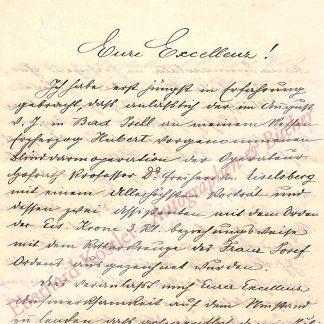 Eure Excellenz!
Ich habe erst jüngst in Erfahrung
gebracht, daß anläßlich der im August
v. J. in Bad Ischl an meinem Neffen
Erzherzog Hubert vorgenommenen
Blinddarmoperation der Operateur
Hofrath Professor Dr. Freiherr v. Eiselsberg
mit einem Allerhöchsten Porträt und
dessen zwei Assistenten mit dem Orden
der Eis. Krone 3. Kl. beziehungsweise
mit dem Ritterkreuze des Franz Josef
Ordens ausgezeichnet wurden.
veranlasst mich Eurer Excellenz
Aufmerksamkeit auf den Umstand
zu lenken, daß